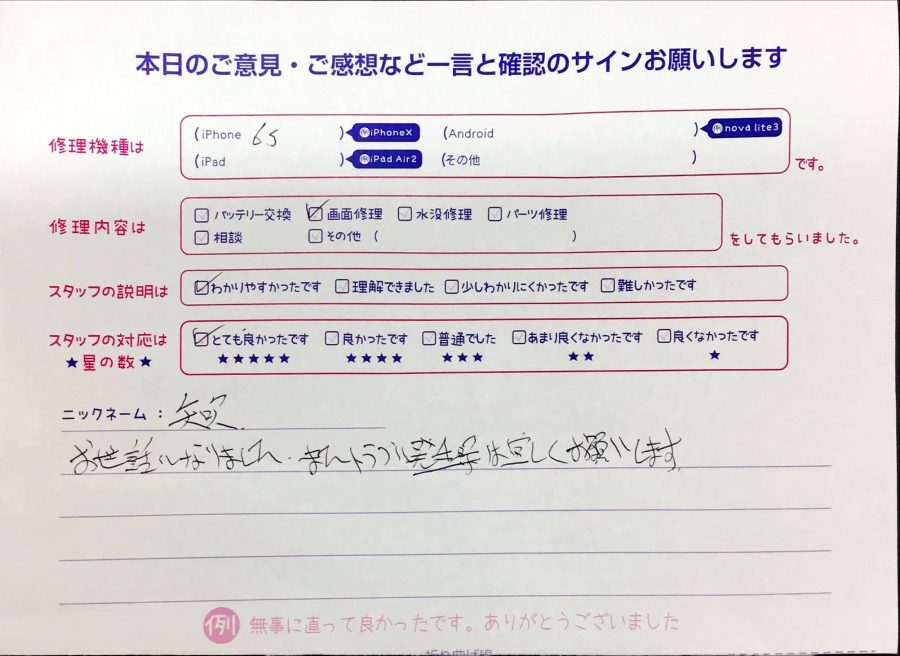 本日のご意見・ご感想など一言と確認のサインお願いします
修理機種は
(iPhone 6S ) 例iPhoneX (Android ) 例nova lite3
(iPad ) 例iPad Air2 (その他 ) です。
修理内容は
バッテリー交換 画面修理 水没修理 パーツ修理
相談 その他 ( ) をしてもらいました。
スタッフの説明は わかりやすかったです 理解できました 少しわかりにくかったです 難しかったです
スタッフの対応は とても良かったです 良かったです 普通でした あまり良くなかったです 良くなかったです
★星の数★ ★★★★★ ★★★★ ★★★ ★★ ★
ニックネーム： 矢沢
お世話になりました。またトラブル発生時は宜しくお願いします
例 無事に直って良かったです。ありがとうございました
折り曲げ線